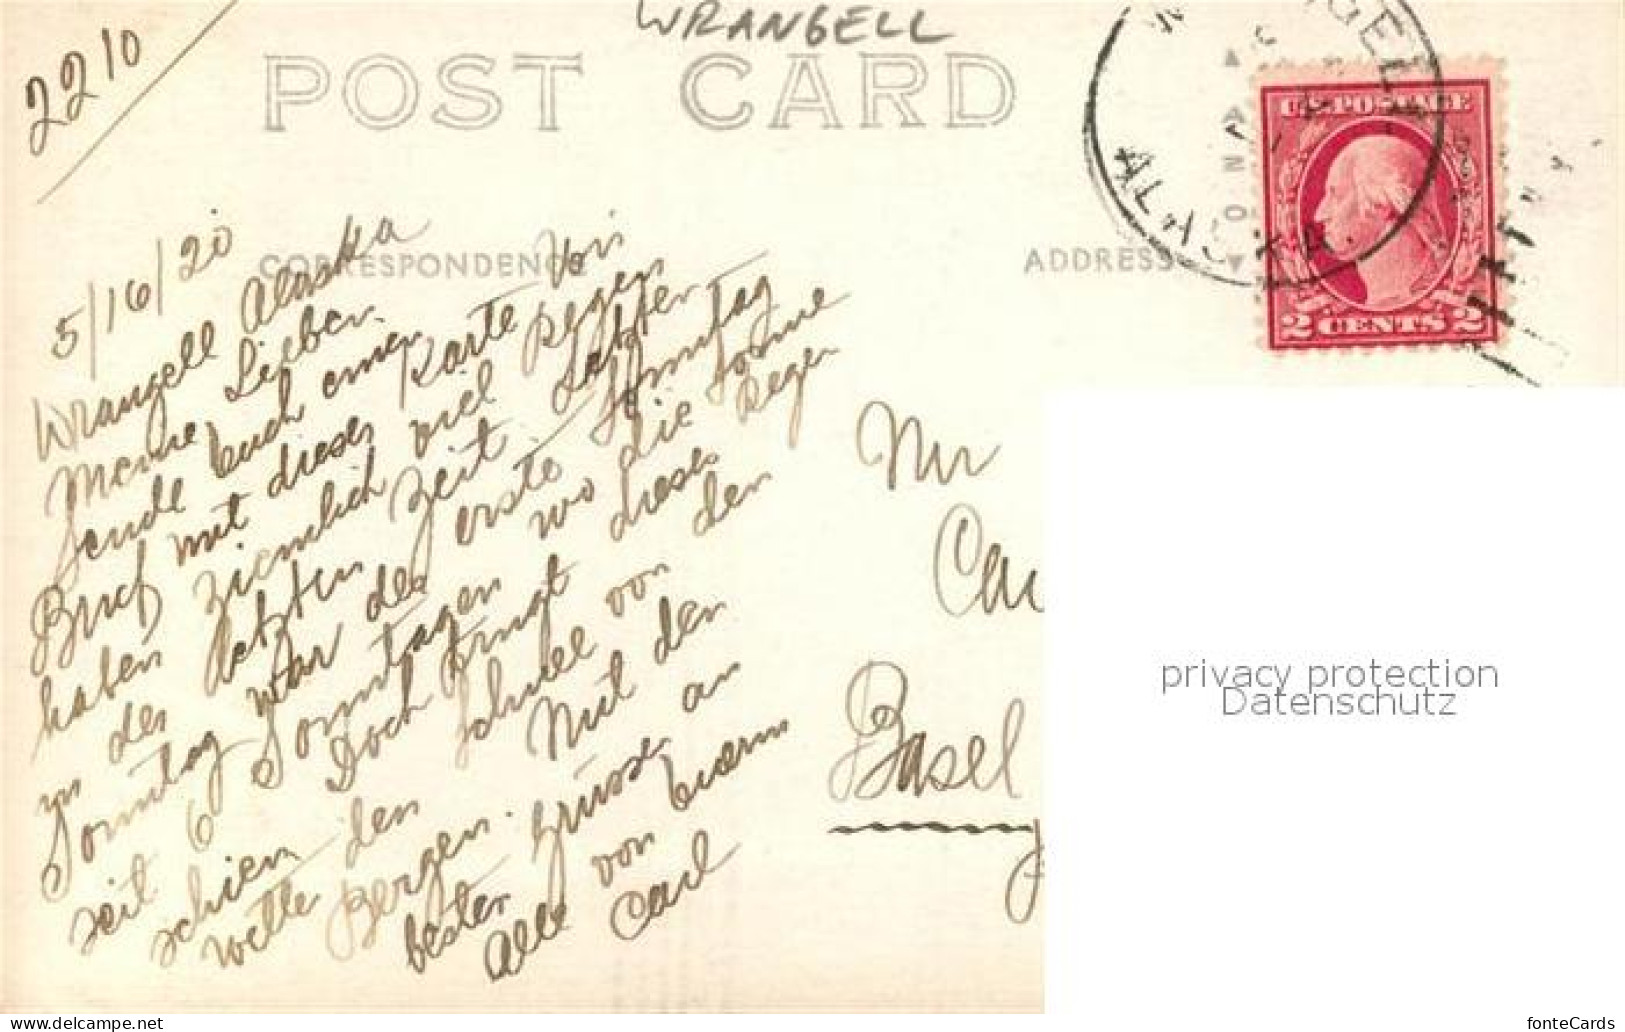 WRANGELL
2210
POST CARD
WRANGELL
ALASKA
U.S. POSTAGE
2 CENTS 2
CORRESPONDENCE
ADDRESS
5/16/20
Wrangell Alaska
Meine Lieben.
Sende Euch einen
Brief mit dieser Karte Wir
haben ziemlich viel Regen
in der letzten Zeit. Letzter
Sonntag war der erste Sonntag
seit 6 Sonntagen wo die Sonne
schien Doch bringt dieses Regen
wetter den Schnee von den
Bergen. Mit den
besten Grüsse an
Alle von Euerm
Carl
Mr
Ca
Basel
privacy protection
Datenschutz
www.delcampe.net
fonteCards